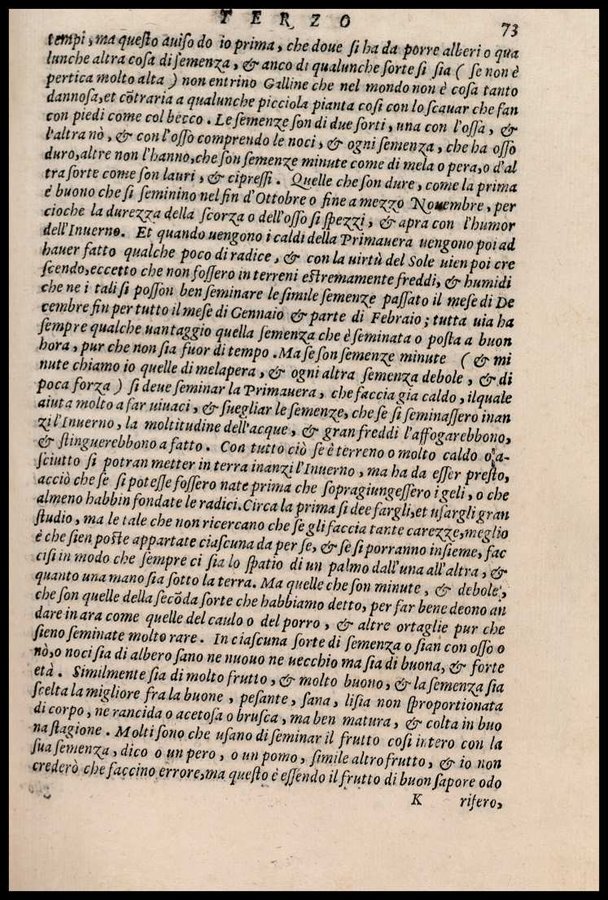 TERZO
73
tempi, ma questo auiso do io prima, che doue si ha da porre alberi o qua
lunche altra cosa di semenza, & anco di qualunche sorte si sia ( se non è
pertica molto alta ) non entrino Galline che nel mondo non è cosa tanto
dannosa, et cõtraria a qualunche picciola pianta cosi con lo scauar che fan
con piedi come col becco. Le semenze son di due sorti, una con l'ossa, &
l'altra nò, & con l'osso comprendo le noci, & ogni semenza, che ha osso
duro, altre non l'hanno, che son semenze minute come di mela o pera, o d'al
tra sorte come son lauri, & cipressi. Quelle che son dure, come la prima
è buono che si seminino nel fin d'Ottobre o fine a mezzo Nouembre, per
cioche la durezza della scorza o dell'osso si spezzi, & apra con l'humor
dell'Inuerno. Et quando uengono i caldi della Primauera uengono poi ad
hauer fatto qualche poco di radice, & con la uirtù del Sole uien poi cre
scendo, eccetto che non fossero in terreni estremamente freddi, & humidi
che ne i tali si posson ben seminare le simile semenze passato il mese di De
cembre fin per tutto il mese di Gennaio & parte di Febraio; tutta uia ha
sempre qualche uantaggio quella semenza che è seminata o posta a buon
hora, pur che non sia fuor di tempo. Ma se son semenze minute ( & mi
nute chiamo io quelle di melapera, & ogni altra semenza debole, & di
poca forza ) si deue seminar la Primauera, che faccia gia caldo, il quale
aiuta molto a far uiuaci, & suegliar le semenze, che se si seminassero inan
zi l'Inuerno, la moltitudine dell'acque, & gran freddi l'affogarebbono,
& stinguerebbono a fatto. Con tutto ciò se è terreno o molto caldo o a-
sciutto si potran metter in terra inanzi l'Inuerno, ma ha da esser presto,
acciò che se si potesse fossero nate prima che sopragiungessero i geli, o che
almeno habbin fondate le radici. Circa la prima si dee fargli, et usargli gran
studio, ma le tale che non ricercano che se gli faccia tante carezze, meglio
è che sien poste appartate ciascuna da per se, & se si porranno insieme, fac
cisi in modo che sempre ci sia lo spatio di un palmo dall'una all'altra, &
quanto una mano sia sotto la terra. Ma quelle che son minute, & debole,
che son quelle della secõda sorte che habbiamo detto, per far bene deono an
dare in ara come quelle del caulo o del porro, & altre ortaglie pur che
sieno seminate molto rare. In ciascuna sorte di semenza o sian con osso o
nò, o noci sia di albero sano ne nuouo ne uecchio ma sia di buona, & forte
età. Similmente sia di molto frutto, & molto buono, & la semenza sia
scelta la migliore fra la buone, pesante, sana, lisia non sproportionata
di corpo, ne rancida o acetosa o brusca, ma ben matura, & colta in buo
na stagione. Molti sono che usano di seminar il frutto cosi intero con la
sua semenza, dico o un pero, o un pomo, simile altro frutto, & io non
crederò che faccino errore, ma questo è essendo il frutto di buon sapore odo
K rifero,